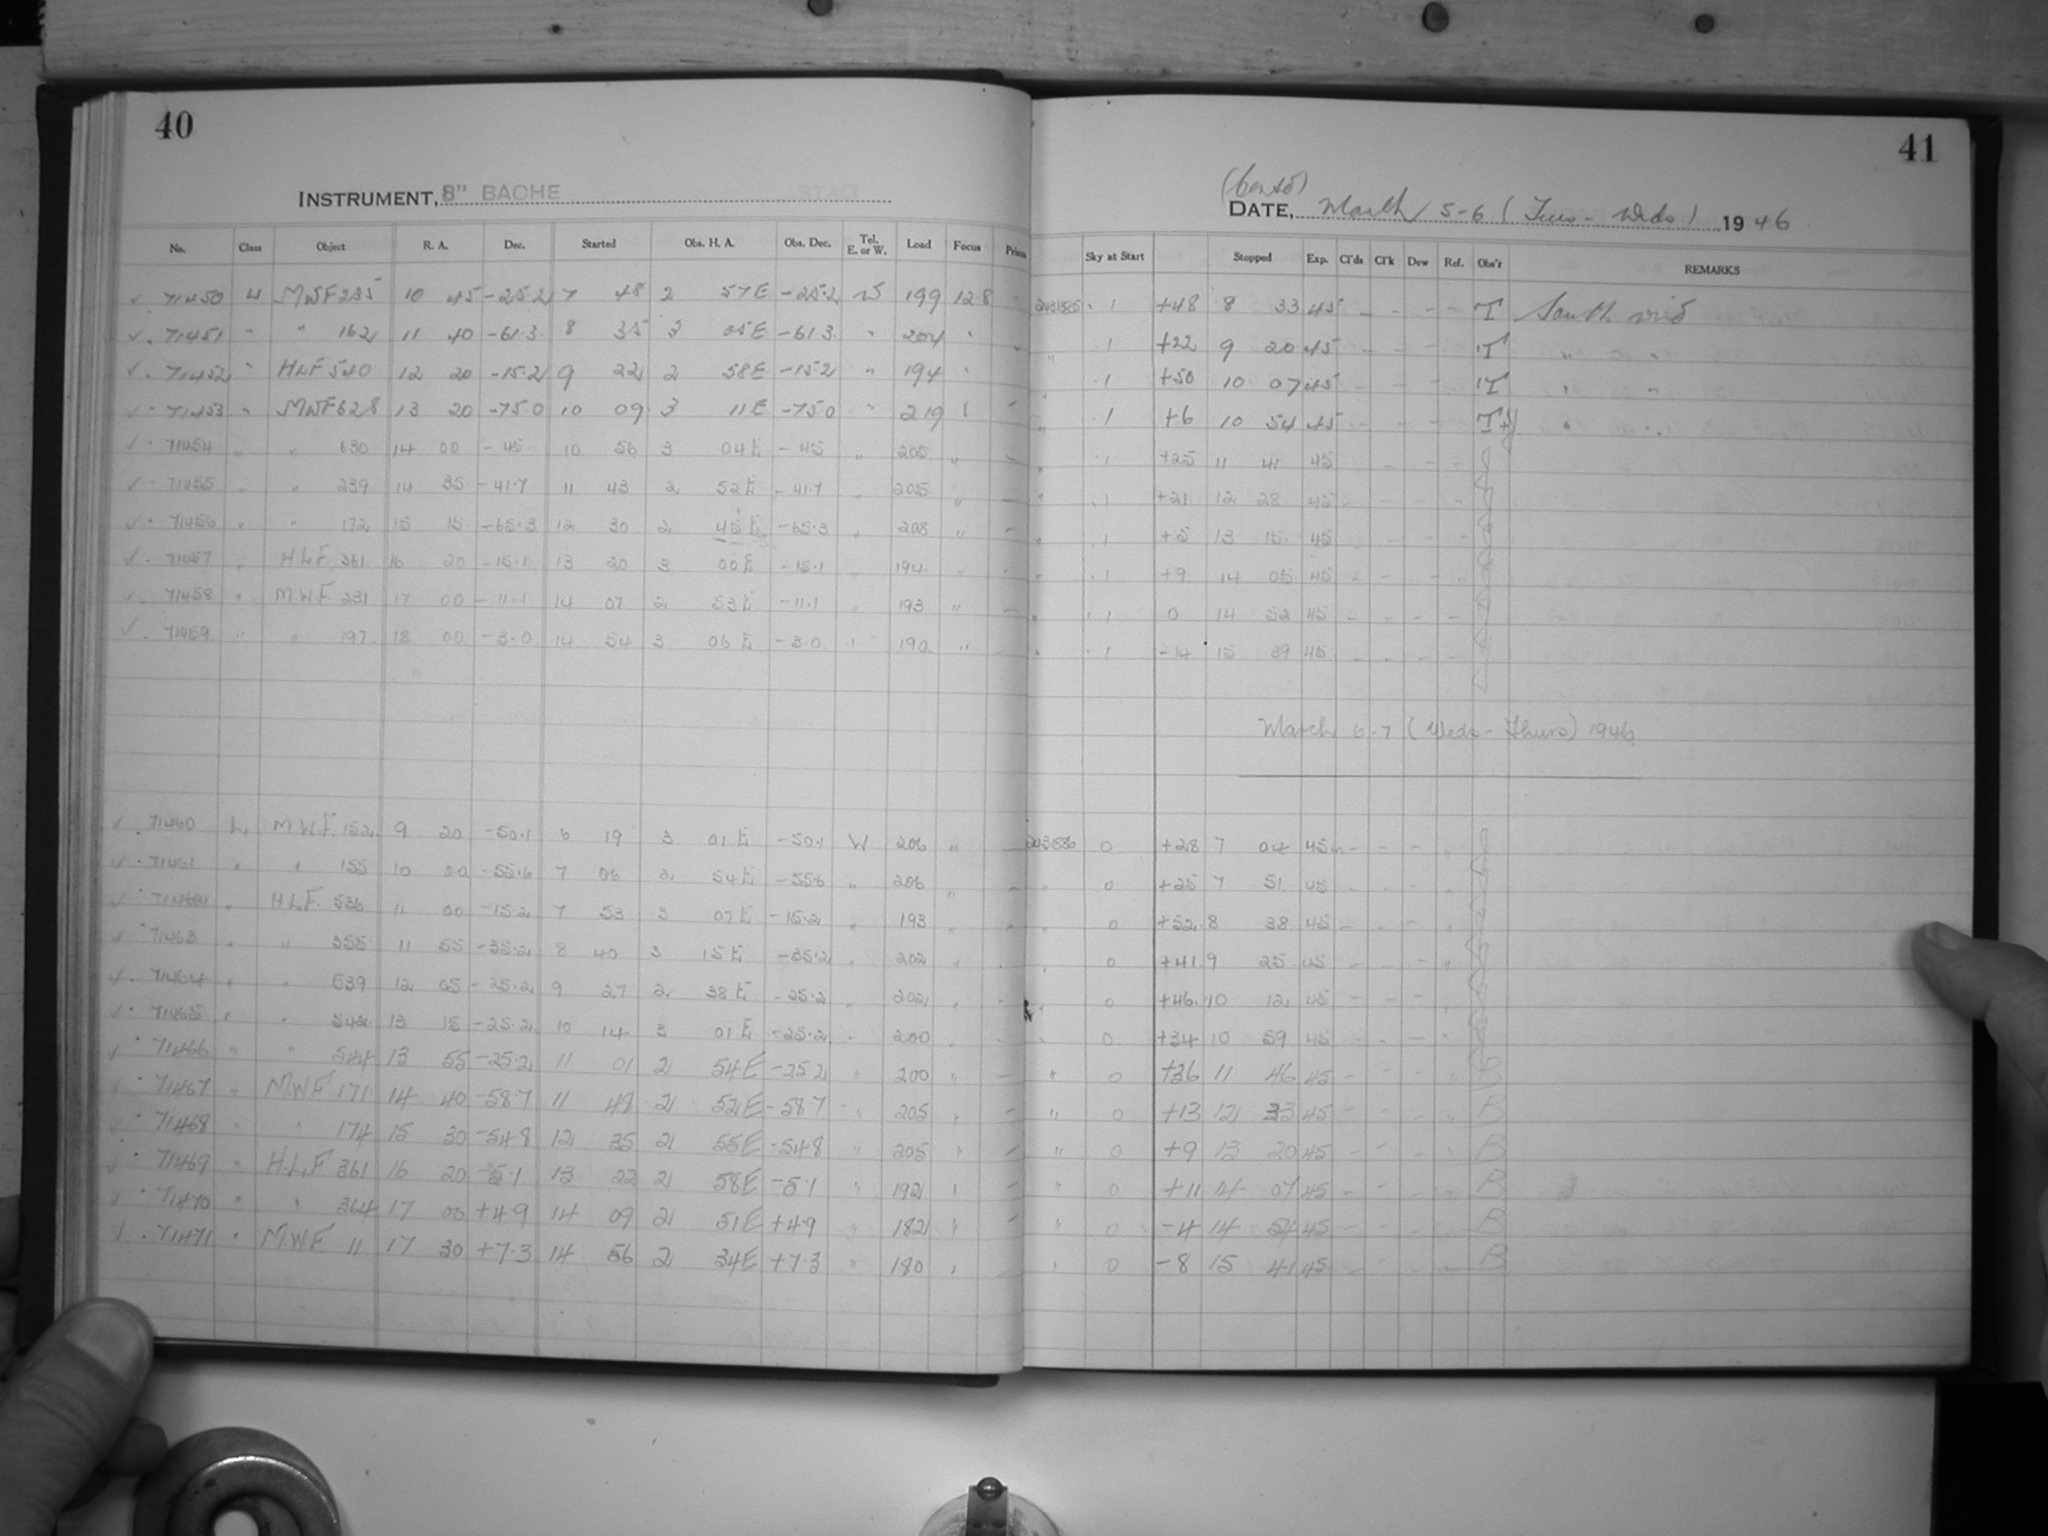 40
INSTRUMENT, 8" BACHE
No. Class Object R. A. Dec. Started Obs. H. A. Obs. Dec. Tel. E. or W. Load Focus
✓ 71450 MWF 235 10 45 -25.2 7 48 2 57E -25.2 W 199 12.8
✓ 71451 " " 162 11 40 -61.3 8 35 3 05E -61.3 " 204 "
✓ 71452 " HLF 540 12 20 -15.2 9 22 2 58E -15.2 " 194 "
✓ 71453 " MWF 628 13 20 -75.0 10 09 3 11E -75.0 " 219
✓ 71454 " " 630 14 00 -45 10 56 3 04E -45 " 205 "
✓ 71455 " " 239 14 35 -41.7 11 43 2 52E -41.7 " 205 "
✓ 71456 " " 172 15 15 -65.3 12 30 2 45E -65.3 " 208 "
✓ 71457 " HLF. 361 16 20 -15.1 13 20 3 00E -15.1 " 194 "
✓ 71458 " M.W.F. 231 17 00 -11.1 14 07 2 53E -11.1 " 193 "
✓ 71459 " " 197 18 00 -3.0 14 54 3 06E -3.0 " 190 "
✓ 71460 L M.W.F. 152 9 20 -50.1 6 19 3 01E -50.1 W 206 "
✓ 71461 " " 155 10 00 -55.6 7 06 2 54E -55.6 " 206 "
✓ 71462 " H.L.F. 536 11 00 -15.2 7 53 3 07E -15.2 " 193 "
✓ 71463 " " 355 11 55 -35.2 8 40 3 15E -35.2 " 202 "
✓ 71464 " " 539 12 05 -25.2 9 27 2 38E -25.2 " 202 "
✓ 71465 " " 542 13 15 -25.2 10 14 3 01E -25.2 " 200 "
✓ 71466 " " 544 13 55 -25.2 11 01 2 54E -25.2 " 200 "
✓ 71467 " M.W.F 171 14 40 -58.7 11 48 2 52E -58.7 " 205 "
✓ 71468 " " 174 15 30 -54.8 12 35 2 55E -54.8 " 205 "
✓ 71469 " H.L.F 361 16 20 -5.1 13 22 2 58E -5.1 " 192 "
✓ 71470 " " 364 17 00 +4.9 14 09 2 51E +4.9 " 182 "
✓ 71471 " M.W.F. 11 17 30 +7.3 14 56 2 34E +7.3 " 180 "
41
(Contd)
DATE, March 5-6 (Tues - Weds) 1946
Sky at Start Stopped Exp. Cl'ds Cl'k Dew Ref. Obs'r REMARKS
2431585 1 +48 8 33 45 - - - - T South wind
" 1 +22 9 20 45 - - - - T " "
" 1 +50 10 07 45 - - - - T " "
" 1 +6 10 54 45 - - - - " "
" 1 +25 11 41 45 - - - -
" 1 +21 12 28 45 - - - -
" 1 +5 13 15 45 - - - -
" 1 +9 14 05 45 - - - -
" 1 0 14 52 45 - - - -
" 1 -14 15 39 45 - - - -
March 6-7 (Weds - Thurs) 1946
2431586 0 +28 7 04 45 - - -
" 0 +25 7 51 45 - - -
" 0 +52 8 38 45 - - -
" 0 +41 9 25 45 - - -
" 0 +46 10 12 45 - - -
" 0 +34 10 59 45 - - -
" 0 +36 11 46 45 - - - B
" 0 +13 12 33 45 - - - B
" 0 +9 13 20 45 - - - B
" 0 +11 14 07 45 - - - B
" 0 -4 14 54 45 - - - B
" 0 -8 15 41 45 - - - B